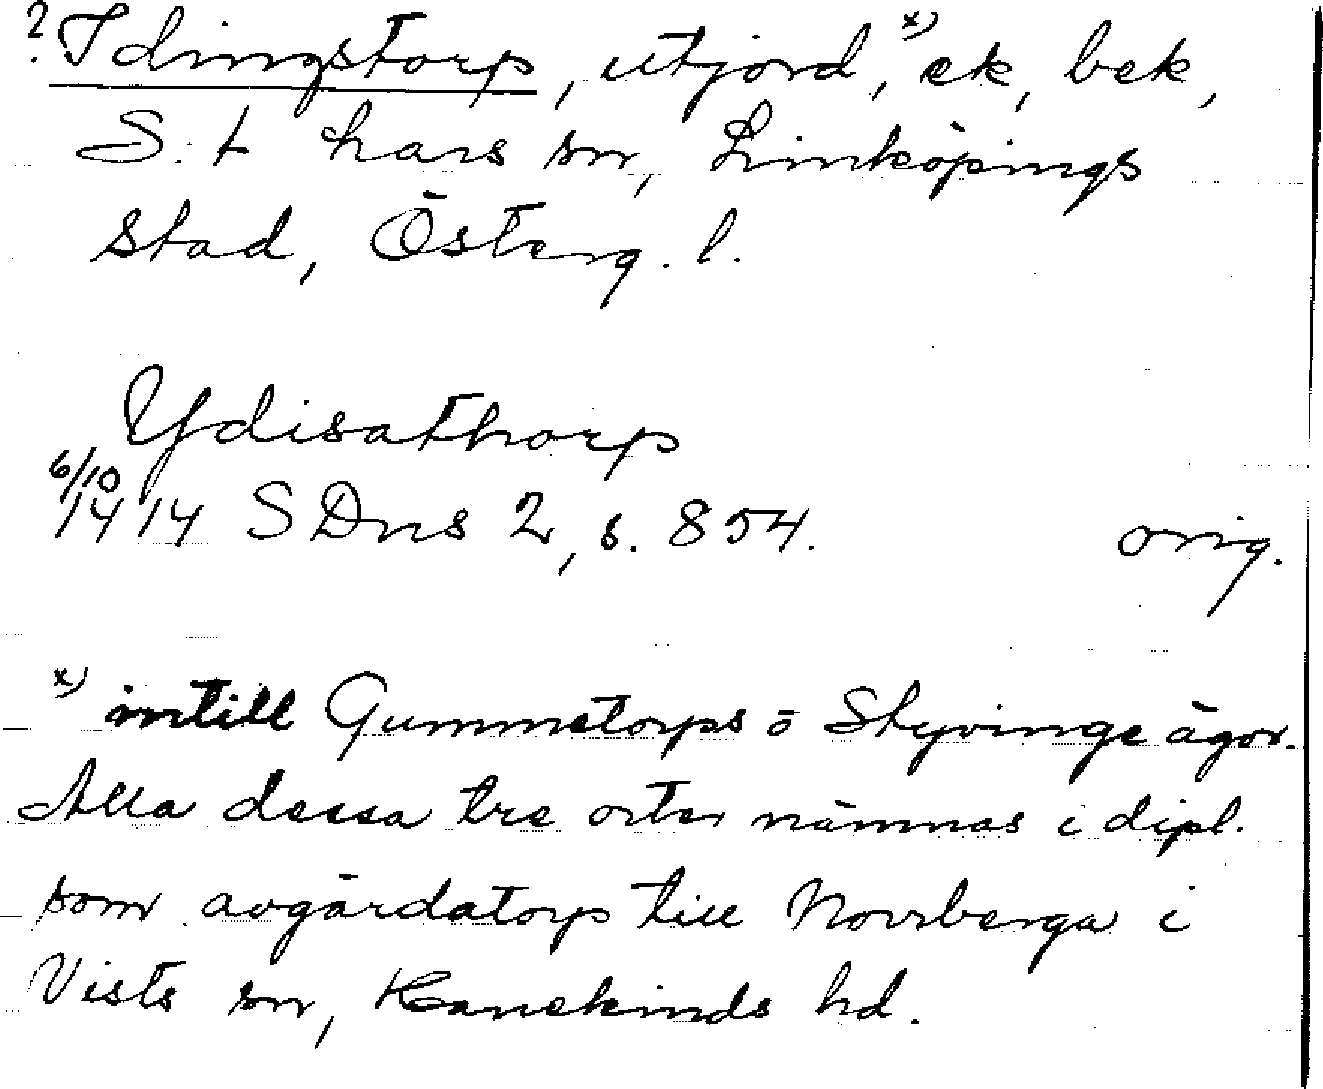 ? Idingstorp, utjord,x) ek, bek,
S:t Lars sn, Linköpings
stad, Österg. l.
Ydisathorp
6/10
1414 SDns 2, s. 854. orig.
x) intill Gummetorps o Styvinge ägor.
Alla dessa tre orter nämnas i dipl.
som avgärdatorp till Norrberga i
Vists sn, Hanekinds hd.